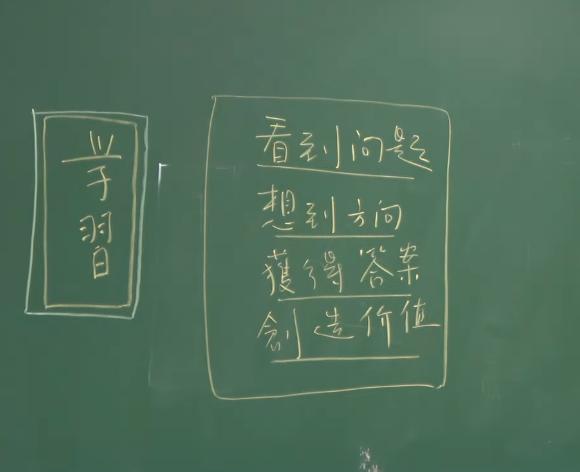 学習
看到问题
想到方向
獲得答案
創造价值